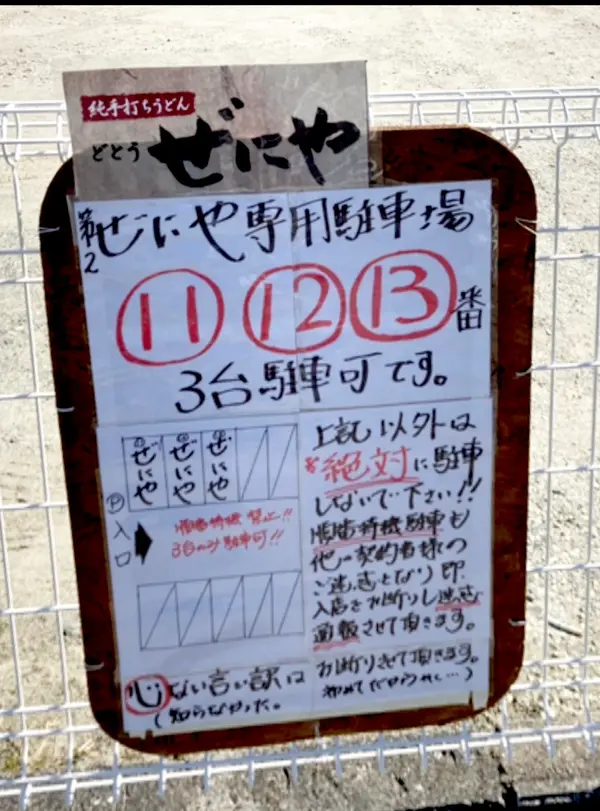 純手打ちうどん
どとう ぜにや
第2 ぜにや専用駐車場
11 12 13番
3台駐車可です。
ぜにや ぜにや ぜにや
P入口
順番待機禁止!!
3台のみ駐車可!!
上記以外は
絶対に駐車
しないで下さい!!
順番待機駐車も
他の契約者様の
ご迷惑となり即
入店をお断りし
通報させて頂きます。
心ない言い訳は
(知らなかった。
お断りさせて頂きます。
初めてだから